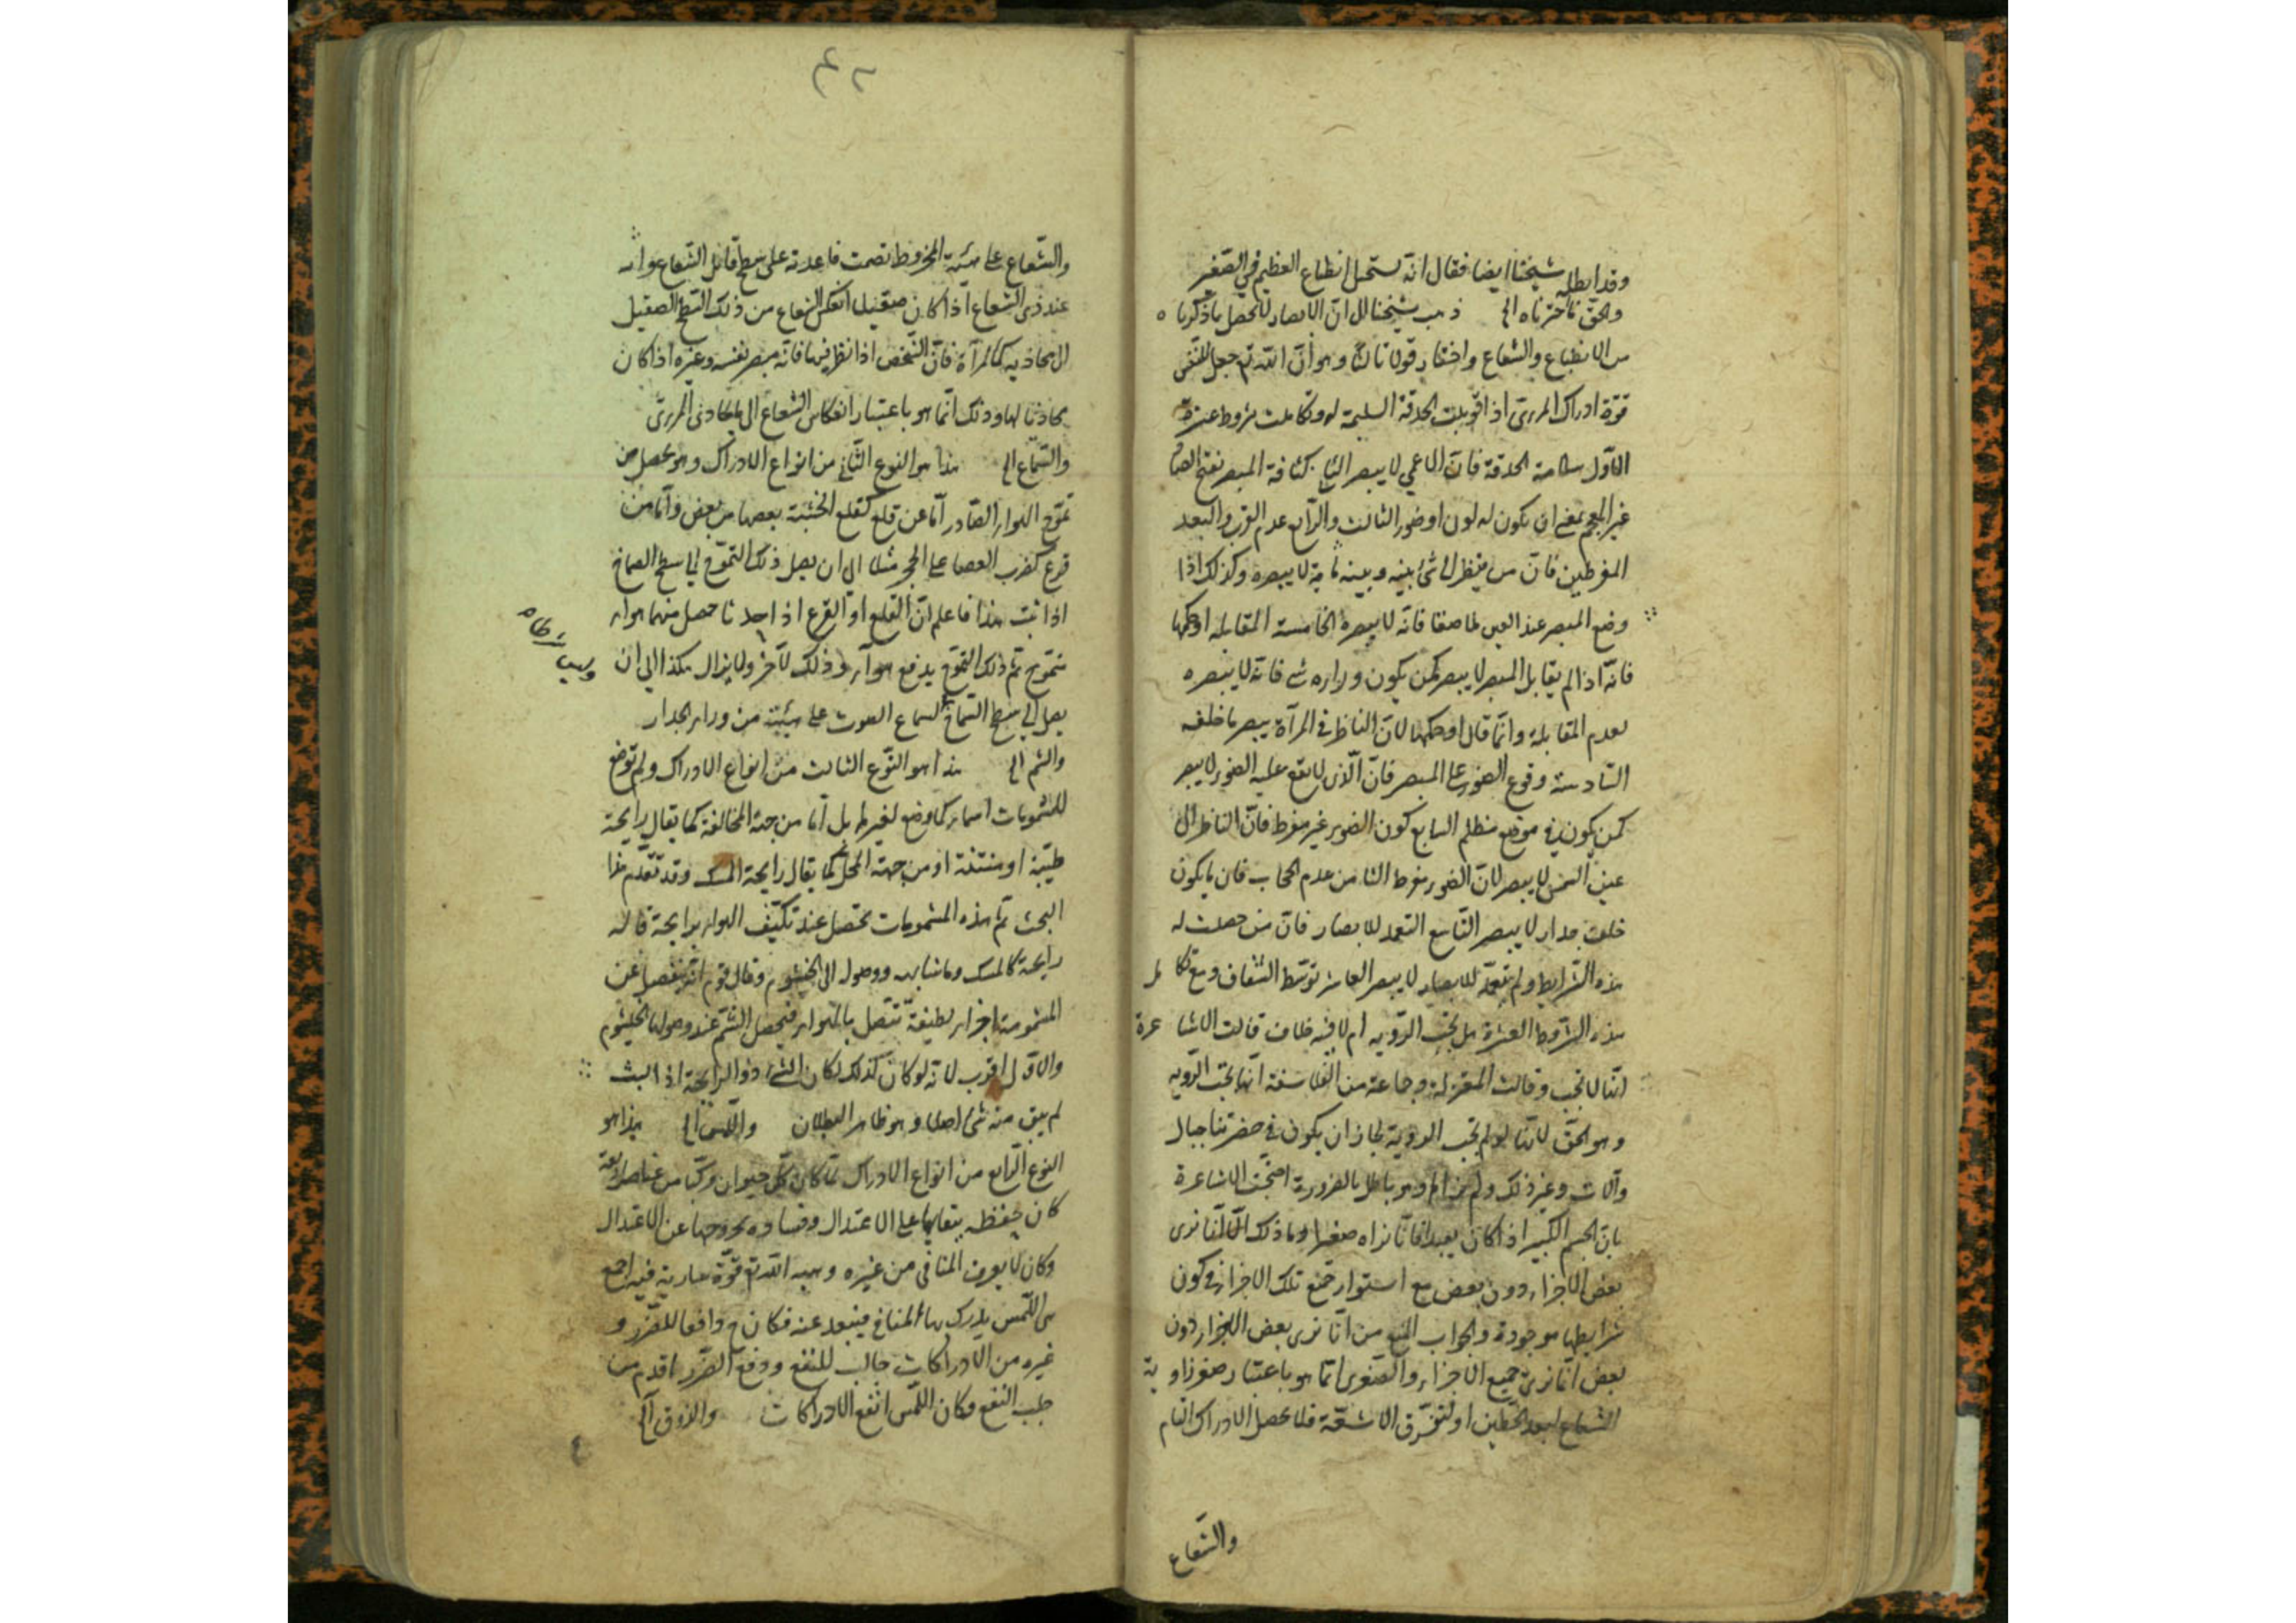 وقد ابطله شيخنا ايضا فقال انه يستحيل انطباع العظيم في الصغير
والحق ما اخترناه الى ذهب شيخنا الى ان الابصار لا يحصل بما ذكرناه
من الانطباع والشعاع واختار قولا ثالثا وهو ان الله تع جعل للنفس
قوة ادراك المرئى اذا قوبلت الحدقة السليمة له وتكاملت شروط عشرة
الاول سلامة الحدقة فان الاعمى لا يبصر الثانى كثافة المبصر بفتح الصاد
غير المعجم بمعنى ان يكون له لون او ضوء الثالث والرابع عدم القرب والبعد
المفرطين فان من ينظر الى شئ بينه وبينه مائة لا يبصره وكذلك اذا
وضع المبصر عند العين ملاصقا فانه لا يبصره الخامسة المقابلة او حكمها
فانه اذا لم يقابل المبصر لا يبصر كمن يكون وراءه شئ فانه لا يبصره
لعدم المقابلة وانما قال او حكمها لان الناظر في المرآة يبصر ما خلفه
السادسة وقوع الضوء على المبصر فان الذى لا يقع عليه الضوء لا يبصر
كمن يكون في موضع مظلم السابع كون الضوء غير مفرط فان الناظر الى
عين الشمس لا يبصر لان الضوء مفرط الثامن عدم الحجاب فان ما يكون
خلف جدار لا يبصر التاسع التعمد للابصار فان من حصلت له
هذه الشرايط ولم يتعمد للابصار لا يبصر العاشر توسط الشفاف ومع تكامل
هذه الشروط العشرة هل يجب الروية ام لا فيه خلاف قالت الاشاعرة
انها لا تجب وقالت المعتزلة وجماعة من الفلاسفة انها تجب الروية
وهو الحق لانا لو لم تجب الروية لجاز ان يكون في حضرتنا جبال
وآلات وغير ذلك ولم نرها وهو باطل بالضرورة احتجت الاشاعرة
بان الجسم الكبير اذا كان بعيدا فانا نراه صغيرا وما ذلك الا لانا نرى
بعض الاجزاء دون بعض مع استواء جميع تلك الاجزاء في كون
شرايطها موجودة والجواب المنع من انا نرى بعض الاجزاء دون
بعض انا نرى جميع الاجزاء والصغرى انما هو باعتبار صغر زاوية
الشعاع لبعد الخطين او لتفرق الاشعة فلا يحصل الادراك التام
والشعاع
٤٢
والشعاع على هيئة المخروط تصمت قاعدته على سطح قابل الشعاع
عند ذى الشعاع اذا كان صقيلا انعكس الشعاع من ذلك السطح الصقيل
الى محاذيه كالمرآة فان الشخص اذا نظر فيها فانه يبصر نفسه وغيره اذا كان
محاذيا لها وذلك انما هو باعتبار انعكاس الشعاع الى المحاذى المرئى
والسماع الى هذا هو النوع الثانى من انواع الادراك وهو يحصل من
تموج الهواء الصادر اما عن قلع كقلع الخشبة بعضها من بعض واما من
قرع كضرب العصا على الحجر مثلا الى ان يصل ذلك التموج الى سطح الصماخ
اذا ثبت هذا فاعلم ان القلع او القرع اذا احدثا حصل منهما هواء
متموج ثم ذلك التموج يدفع هواء وذلك لآخر ولا يزال هكذا الى ان
يصل الى سطح الصماخ لسماع الصوت على هيئته من وراء الجدار
والشم الى هذا هو النوع الثالث من انواع الادراك ولم توضع
للمشمومات اسماء كما وضع لغيرها بل اما من جهة المخالفة كما يقال رايحة
طيبة او منتنة او من جهة المحل كما يقال رايحة المسك وقد تقدم هذا
البحث ثم هذه المشمومات تحصل عند تكيف الهواء برايحة قاله
رايحة كالمسك وما شابهه ووصوله الى الخيشوم وقال قوم انه ينفصل عن
المشمومة اجزاء لطيفة تتصل بالهواء فيحصل الشم عند وصولها الخيشوم
والاول اقرب لانه لو كان كذلك لكان الشئ ذو الرايحة اذا لبث
لم يبق منه شئ اصلا وهو ظاهر البطلان واللمس الى هذا هو
النوع الرابع من انواع الادراك لما كان كل حيوان مركبا من عناصر اربعة
كان حفظه ببقائها على الاعتدال وفساده بخروجها عن الاعتدال
وكان لا يعرف المنافى من غيره وهبه الله تع قوة سارية فيه اجمع
هى اللمس يدرك بها المنافى فيبعد عنه فكان ح دافعا للضرر و
غيره من الادراكات جالب للنفع ودفع الضرر اقدم من
جلب النفع فكان اللمس انفع الادراكات والذوق الى